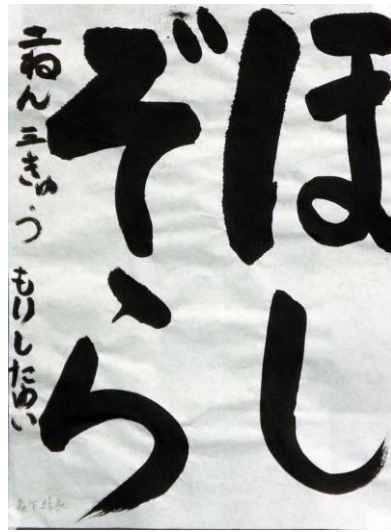 ほし
ぞら
二ねん 三きゅう もりしたゆい